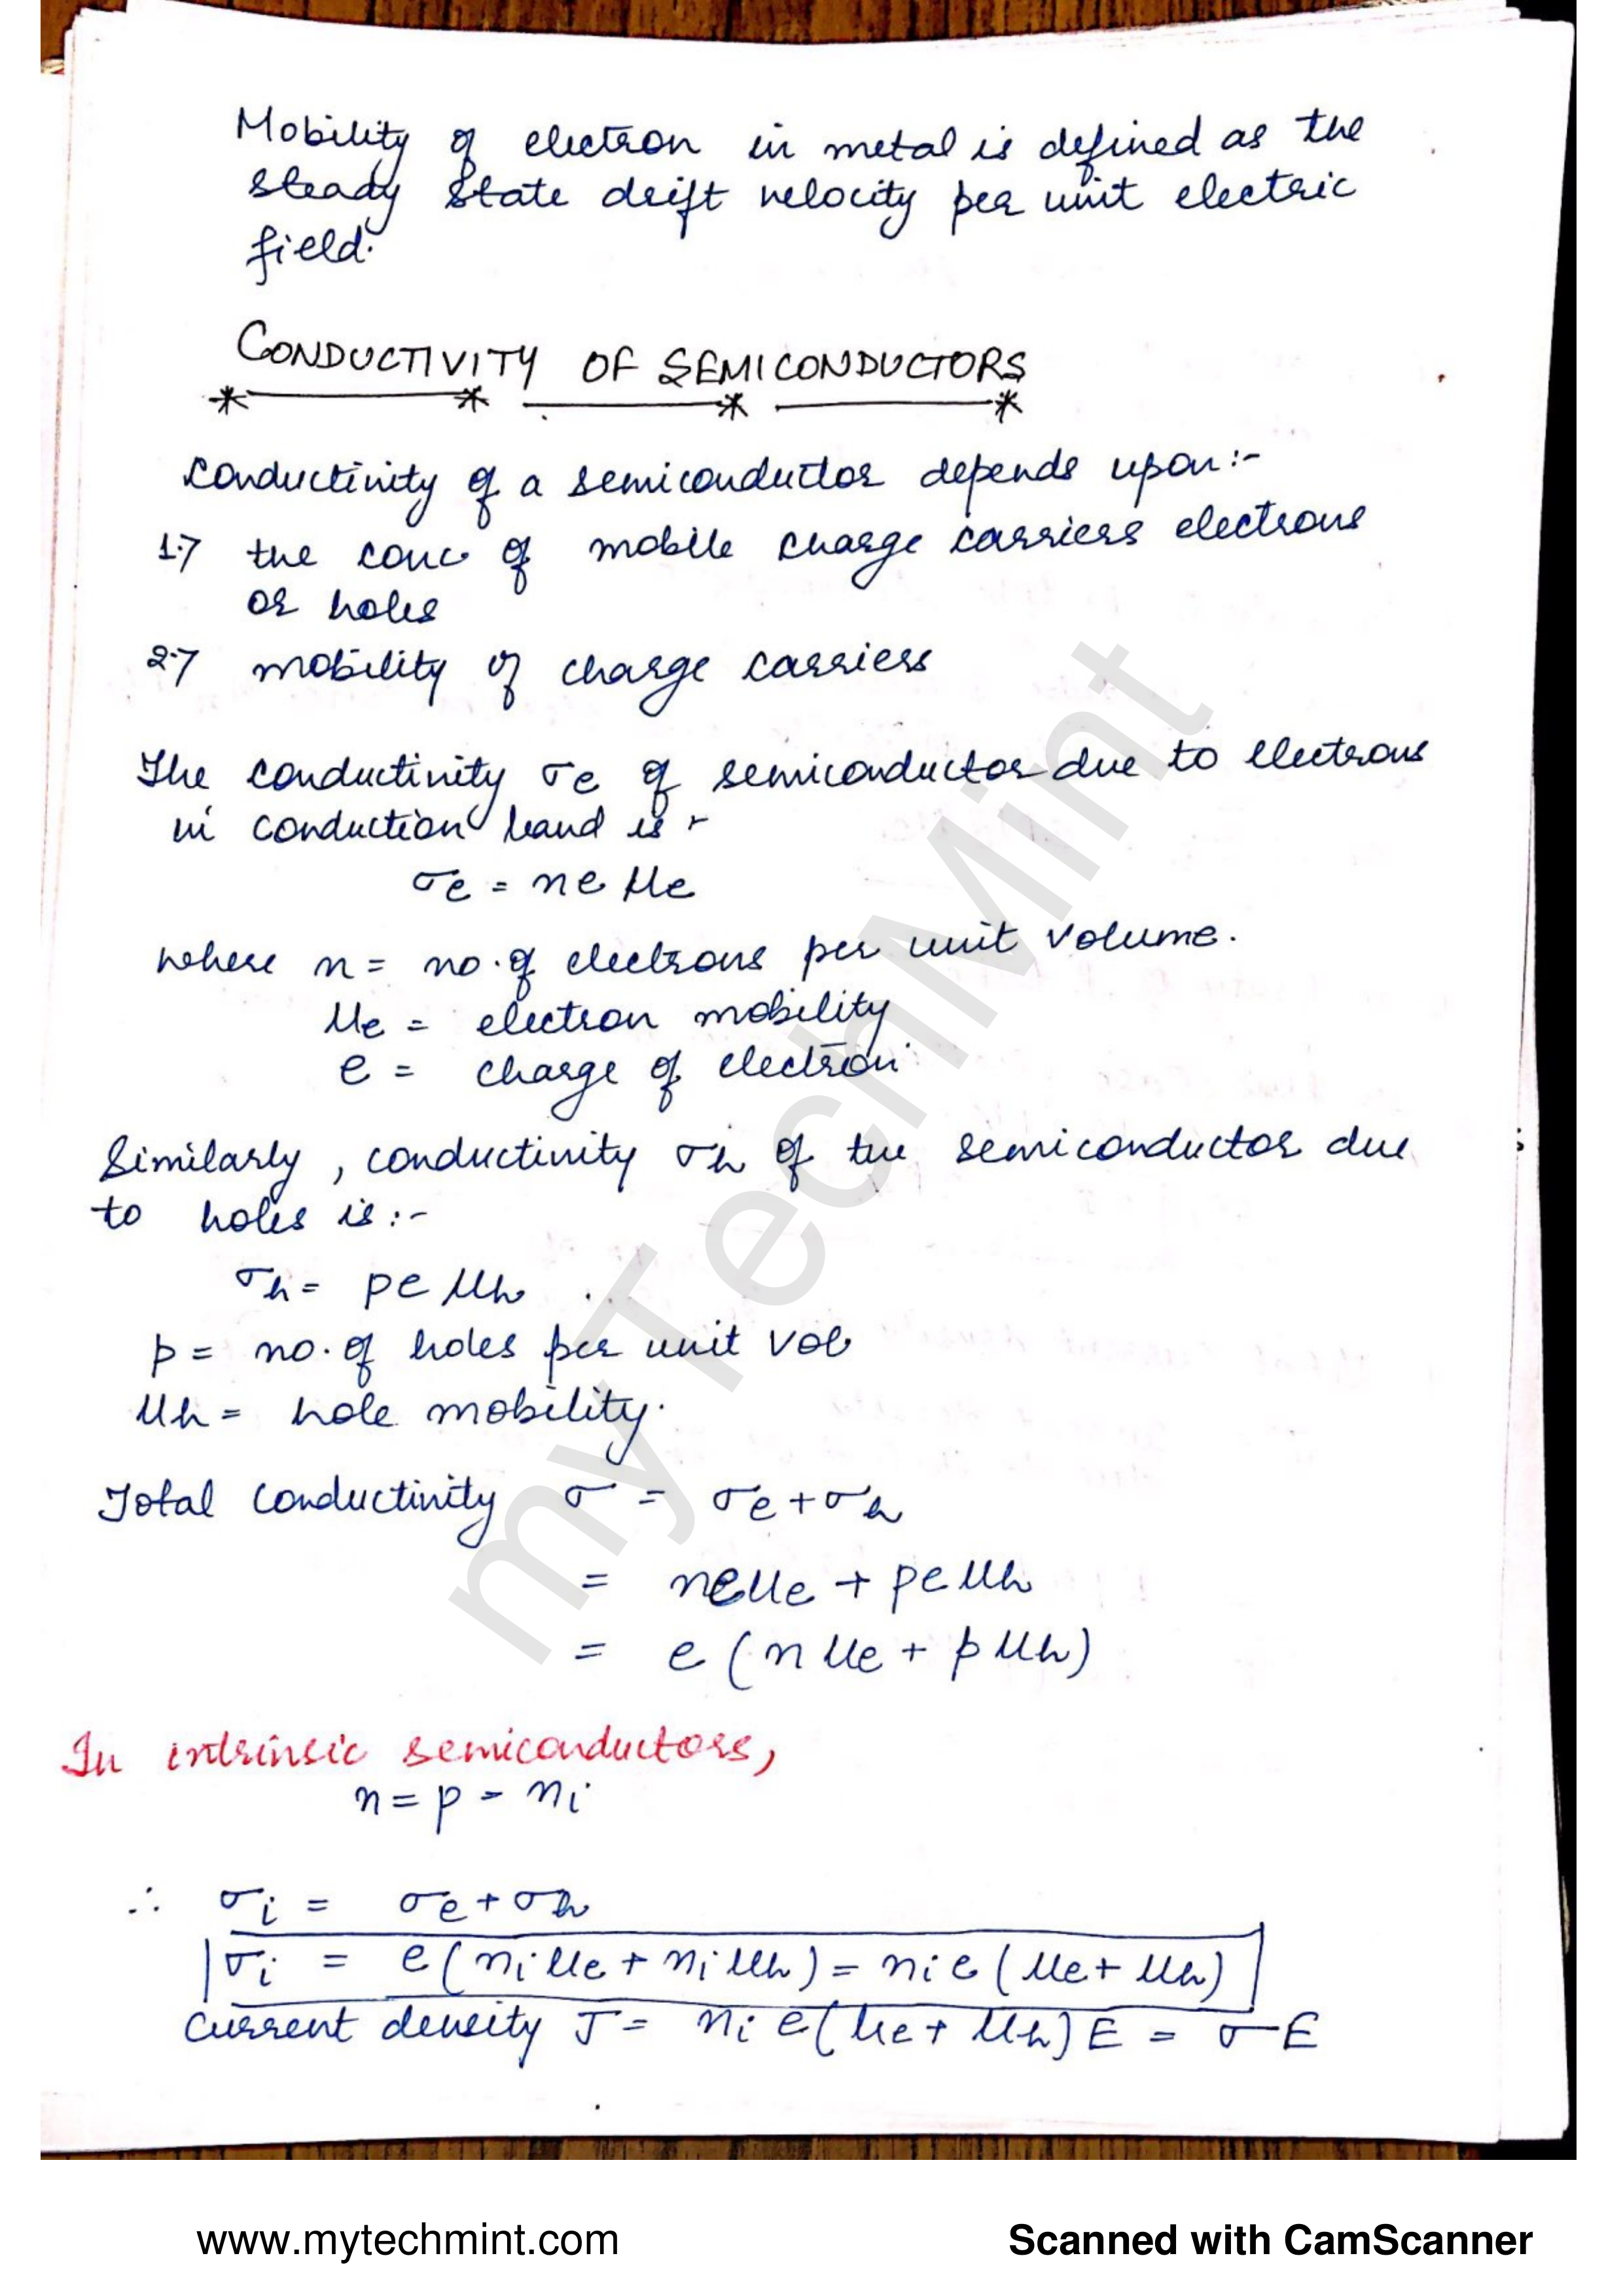 Mobility of electron in metal is defined as the
steady state drift velocity per unit electric
field.
CONDUCTIVITY OF SEMICONDUCTORS
Conductivity of a semiconductor depends upon:-
1.7 the conc of mobile charge carriers electrons
or holes
2.7 mobility of charge carriers
The conductivity σe of semiconductor due to electrons
in conduction band is :-
σe = neμe
where n = no. of electrons per unit volume.
μe = electron mobility
e = charge of electron
Similarly, conductivity σh of the semiconductor due
to holes is :-
σh = peμh
p = no. of holes per unit vol
μh = hole mobility.
Total conductivity σ = σe + σh
= neμe + peμh
= e(nμe + pμh)
In intrinsic semiconductors,
n = p = ni
∴ σi = σe + σh
σi = e(niμe + niμh) = nie(μe + μh)
Current density J = nie(μe + μh)E = σE
myTechMint
www.mytechmint.com
Scanned with CamScanner